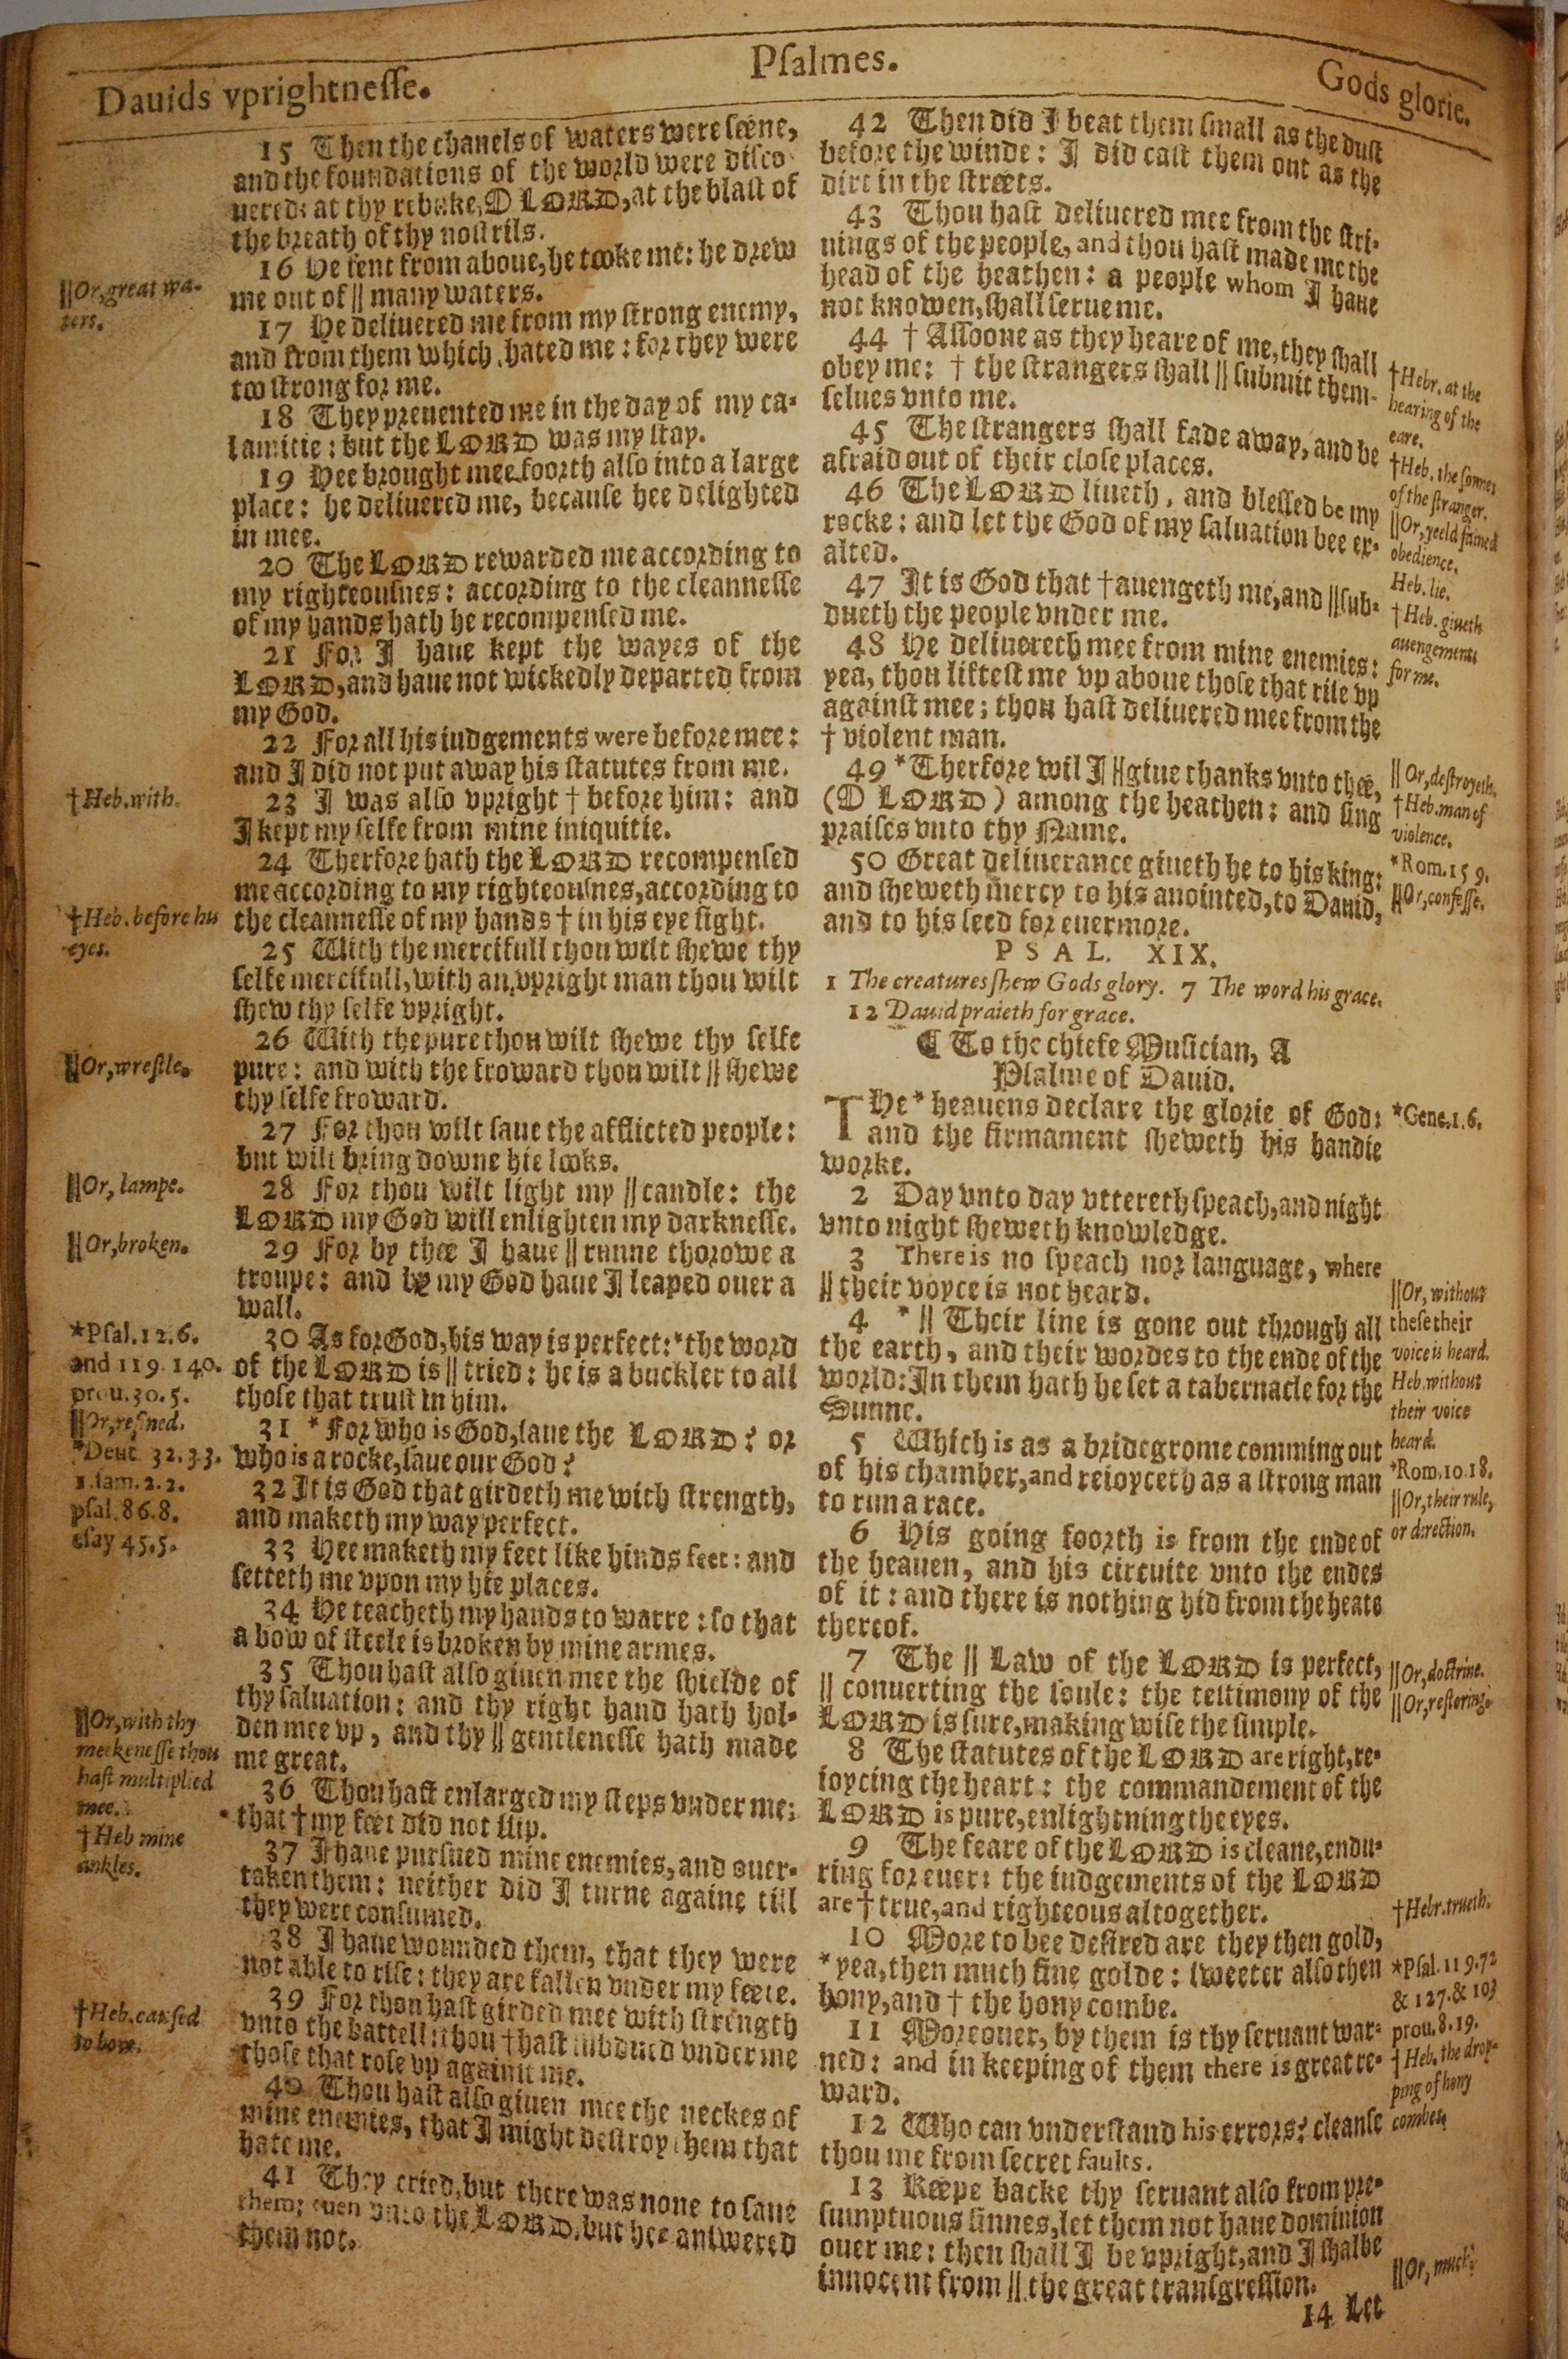 Dauids vprightneſſe.
Pſalmes.
Gods glorie.
15 Then the chanels of waters were ſeene,
and the foundations of the world were diſco
uered: at thy rebuke, O LORD, at the blaſt of
the breath of thy noſtrils.
16 He ſent from aboue, he tooke me: he drew
me out of || many waters.
17 He deliuered me from my ſtrong enemy,
and from them which hated me: for they were
too ſtrong for me.
18 They preuented me in the day of my ca-
lamitie: but the LORD was my ſtay.
19 Hee brought mee foorth alſo into a large
place: he deliuered me, becauſe hee delighted
in mee.
20 The LORD rewarded me according to
my righteouſnes: according to the cleanneſſe
of my hands hath he recompenſed me.
21 For I haue kept the wayes of the
LORD, and haue not wickedly departed from
my God.
22 For all his iudgements were before mee:
and I did not put away his ſtatutes from me.
23 I was alſo vpright † before him: and
I kept my ſelfe from mine iniquitie.
24 Therfore hath the LORD recompenſed
me according to my righteouſnes, according to
the cleanneſſe of my hands † in his eye ſight.
25 With the mercifull thou wilt ſhewe thy
ſelfe mercifull, with an vpright man thou wilt
ſhew thy ſelfe vpright.
26 With the pure thou wilt ſhewe thy ſelfe
pure: and with the froward thou wilt || ſhewe
thy ſelfe froward.
27 For thou wilt ſaue the afflicted people:
but wilt bring downe hie lookes.
28 For thou wilt light my || candle: the
LORD my God will enlighten my darkneſſe.
29 For by thee I haue || runne thorowe a
troupe: and by my God haue I leaped ouer a
wall.
30 As for God, his way is perfect: * the word
of the LORD is || tried: he is a buckler to all
thoſe that truſt in him.
31 * For who is God, ſaue the LORD? or
who is a rocke, ſaue our God?
32 It is God that girdeth me with ſtrength,
and maketh my way perfect.
33 Hee maketh my feet like hinds feet: and
ſetteth me vpon my hie places.
34 He teacheth my hands to warre: ſo that
a bow of ſteele is broken by mine armes.
35 Thou haſt alſo giuen mee the ſhielde of
thy ſaluation: and thy right hand hath hol-
den mee vp, and thy || gentleneſſe hath made
me great.
36 Thou haſt enlarged my ſteps vnder me:
that † my feet did not ſlip.
37 I haue purſued mine enemies, and ouer-
taken them: neither did I turne againe till
they were conſumed.
38 I haue wounded them, that they were
not able to riſe: they are fallen vnder my feete.
39 For thou haſt girded mee with ſtrength
vnto the battell: thou † haſt ſubdued vnder me
thoſe that roſe vp againſt me.
40 Thou haſt alſo giuen mee the neckes of
mine enemies, that I might deſtroy them that
hate me.
41 They cried, but there was none to ſaue
them: euen vnto the LORD, but hee anſwered
them not.
||Or, great wa-
ters.
†Heb. with.
†Heb. before his
eyes.
||Or, wreſtle.
||Or, lampe.
||Or, broken.
*Pſal. 12.6.
and 119.140.
prou. 30.5.
||Or, refined.
*Deut. 32.33.
1.ſam. 2.2.
pſal. 86.8.
eſay 45.5.
||Or, with thy
meekeneſſe thou
haſt multiplied
mee.
†Heb mine
ankles.
†Heb. cauſed
to bow.
42 Then did I beat them ſmall as the duſt
before the winde: I did caſt them out as the
dirt in the ſtreets.
43 Thou haſt deliuered mee from the ſtri-
uings of the people, and thou haſt made me the
head of the heathen: a people whom I haue
not knowen, ſhall ſerue me.
44 † Aſſoone as they heare of me, they ſhall
obey me: † the ſtrangers ſhall || ſubmit them-
ſelues vnto me.
45 The ſtrangers ſhall fade away, and be
afraid out of their cloſe places.
46 The LORD liueth, and bleſſed be my
rocke: and let the God of my ſaluation bee ex-
alted.
47 It is God that † auengeth me, and || ſub-
dueth the people vnder me.
48 He deliuereth mee from mine enemies:
yea, thou lifteſt me vp aboue thoſe that riſe vp
againſt mee; thou haſt deliuered mee from the
† violent man.
49 * Therfore wil I || giue thanks vnto thee,
(O LORD) among the heathen: and ſing
praiſes vnto thy Name.
50 Great deliuerance giueth he to his king:
and ſheweth mercy to his anointed, to Dauid,
and to his ſeed for euermore.
PSAL. XIX.
1 The creatures ſhew Gods glory. 7 The word his grace.
12 Dauid praieth for grace.
¶ To the chiefe Muſician, A
Pſalme of Dauid.
THe * heauens declare the glorie of God:
and the firmament ſheweth his handie
worke.
2 Day vnto day vttereth ſpeach, and night
vnto night ſheweth knowledge.
3 There is no ſpeach nor language, where
|| their voyce is not heard.
4 * || Their line is gone out through all
the earth, and their wordes to the ende of the
world: In them hath he ſet a tabernacle for the
Sunne.
5 Which is as a bridegrome comming out
of his chamber, and reioyceth as a ſtrong man
to run a race.
6 His going foorth is from the ende of
the heauen, and his circuite vnto the endes
of it: and there is nothing hid from the heate
thereof.
7 The || Law of the LORD is perfect,
|| conuerting the ſoule: the teſtimony of the
LORD is ſure, making wiſe the ſimple.
8 The ſtatutes of the LORD are right, re-
ioycing the heart: the commandement of the
LORD is pure, enlightning the eyes.
9 The feare of the LORD is cleane, endu-
ring for euer: the iudgements of the LORD
are † true, and righteous altogether.
10 More to bee deſired are they then gold,
* yea, then much fine golde: ſweeter alſo then
hony, and † the hony combe.
11 Moreouer, by them is thy ſeruant war-
ned: and in keeping of them there is great re-
ward.
12 Who can vnderſtand his errors? cleanſe
thou me from ſecret faults.
13 Keepe backe thy ſeruant alſo from pre-
ſumptuous ſinnes, let them not haue dominion
ouer me: then ſhall I be vpright, and I ſhalbe
innocent from || the great tranſgreſſion.
14 Let
†Hebr. at the
hearing of the
eare.
†Heb. the ſonnes
of the ſtranger.
||Or, yeeld fained
obedience.
Heb. lie.
†Heb. giueth
auengements
for me.
||Or, deſtroyeth.
†Heb. man of
violence.
*Rom. 15 9.
||Or, confeſſe.
*Gene. 1.6.
||Or, without
theſe their
voice is heard.
Heb. without
their voice
heard.
*Rom. 10 18.
||Or, their rule,
or direction.
||Or, doctrine.
||Or, reſtoring.
†Hebr. trueth.
*Pſal. 119.72
& 127. & 103
prou. 8.19.
†Heb. the drop-
ping of hony
combes.
||Or, much.